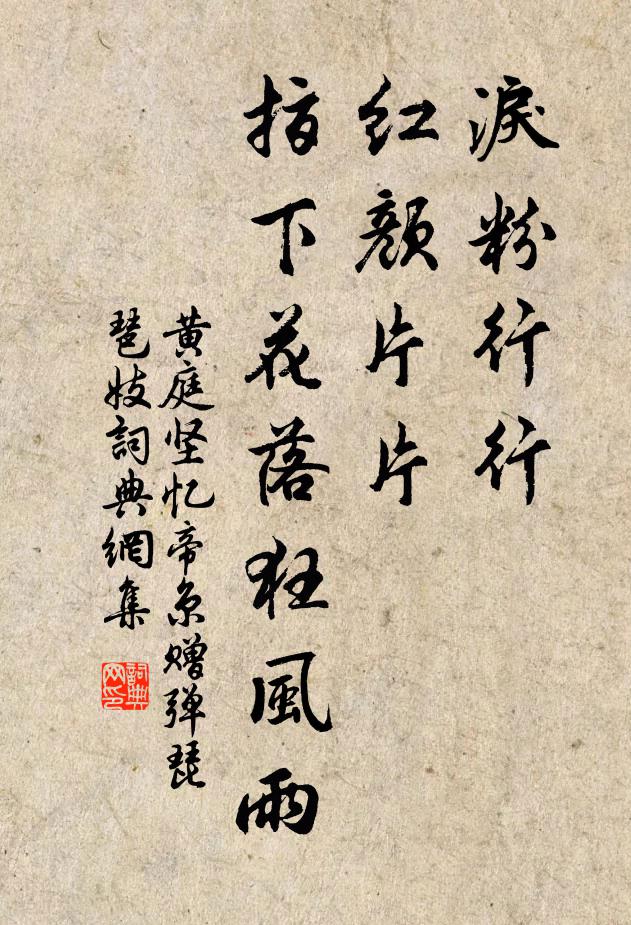 淚粉行行
红顏片片
指下花落狂風雨
黄庭坚忆帝京赠弹琵
琶妓詞典網集
詞典网印